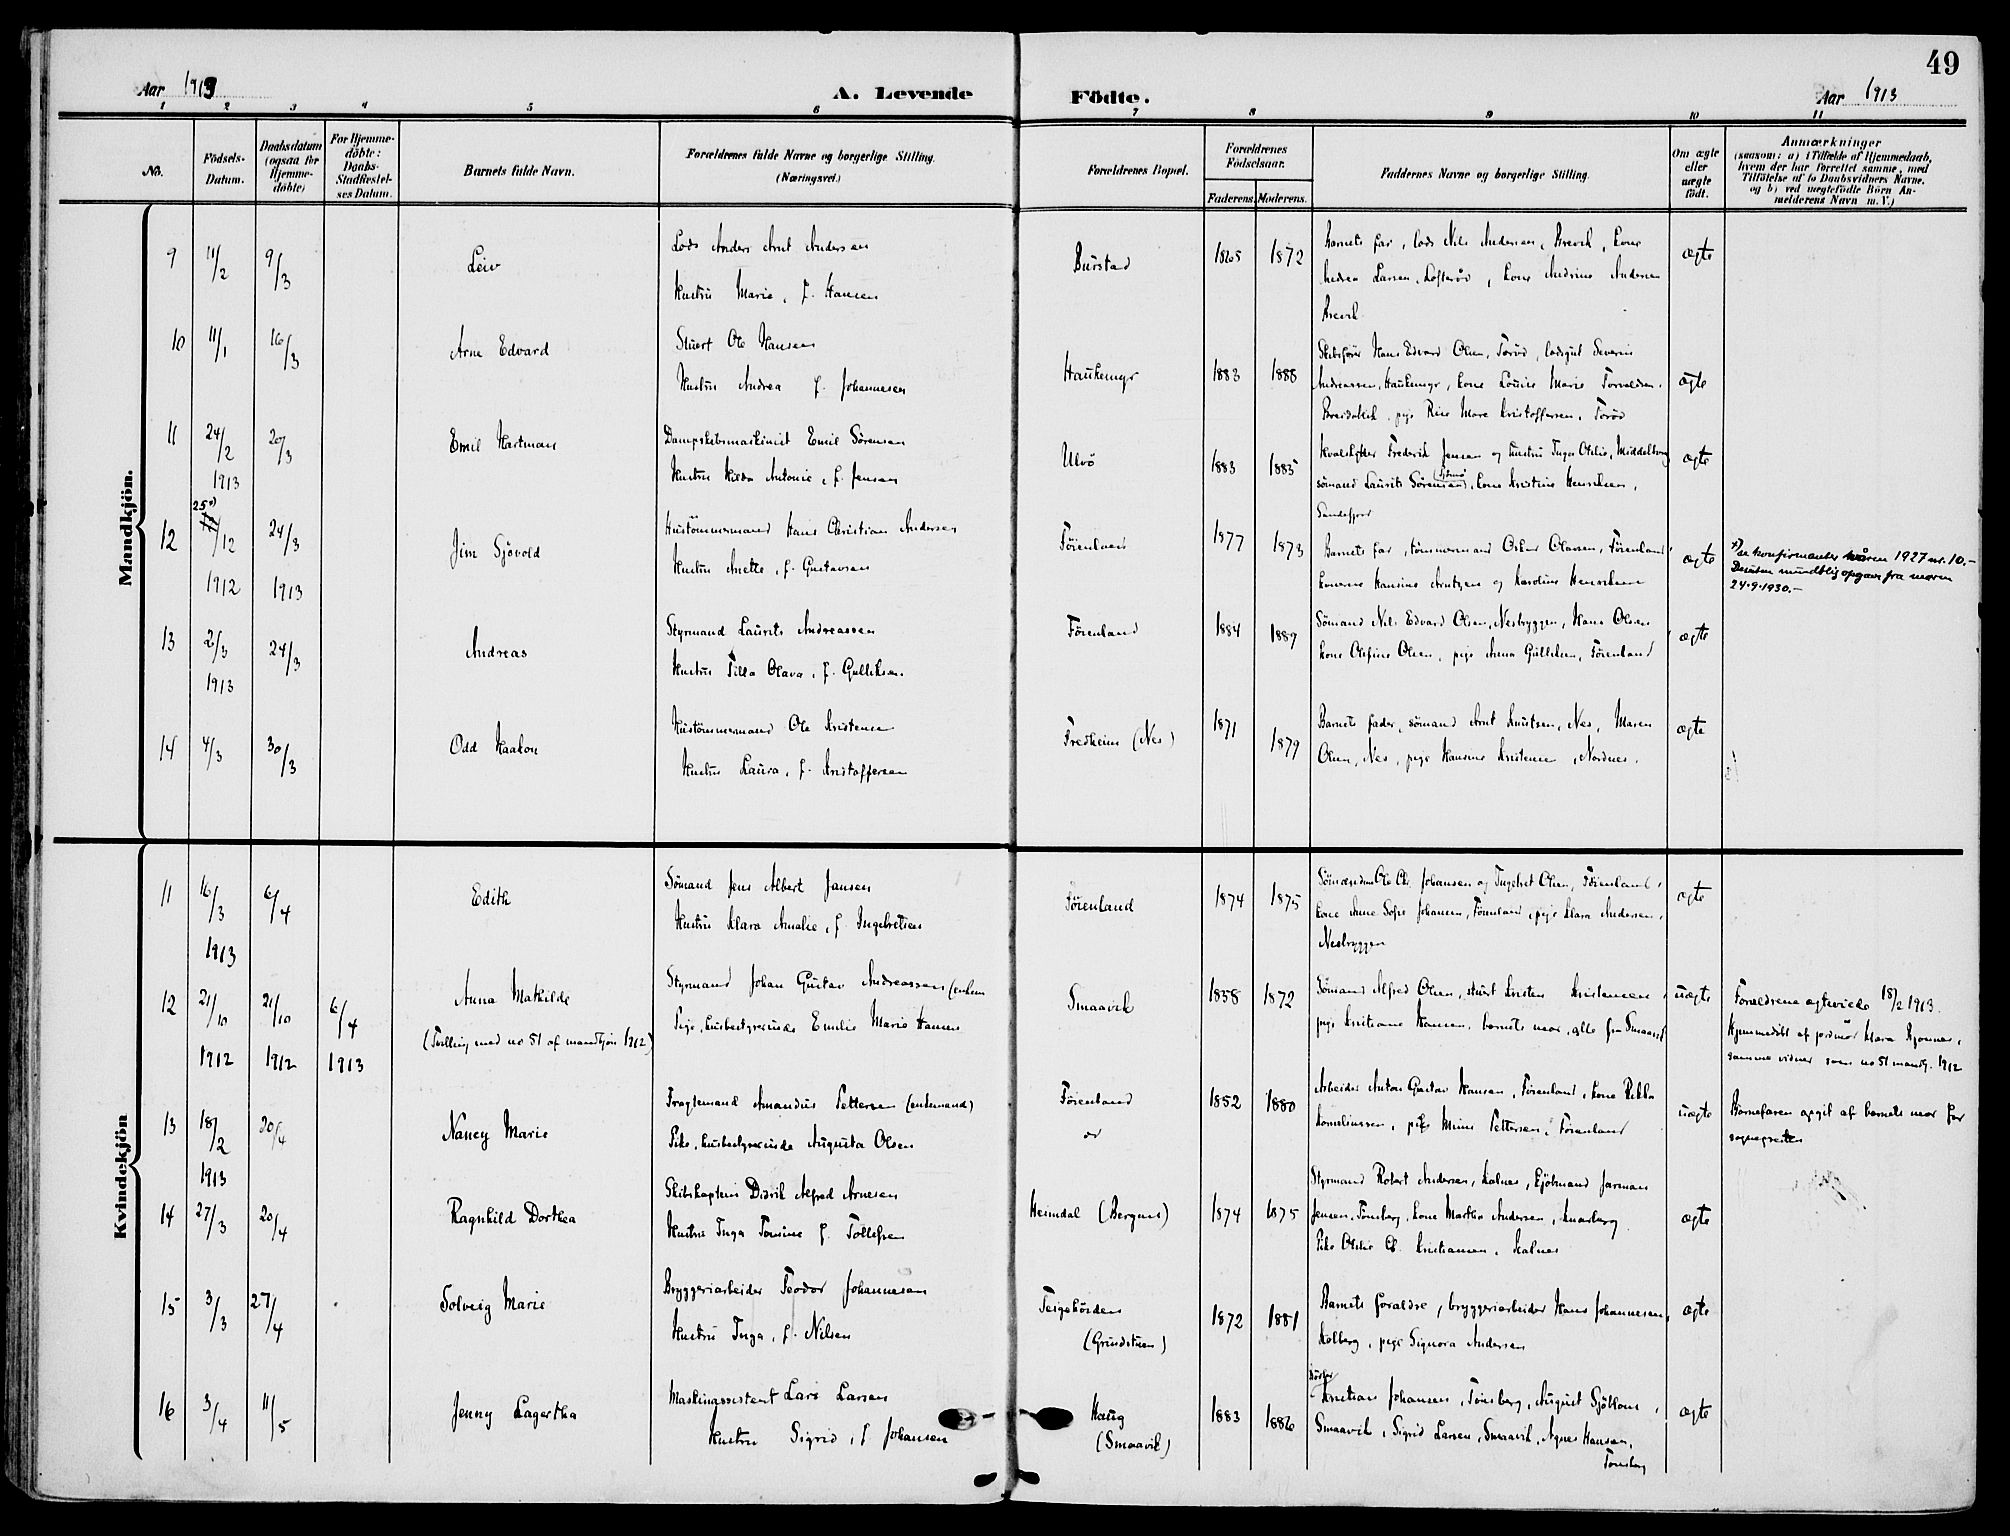 49
Aar 1913
A. Levende Födte.
Aar 1913
1 2 3 4 5 6 7 8 9 10 11
No.
Födsels-
Datum.
Daabsdatum
(ogsaa for
Hjemme-
döbte)
For Hjemme-
döbte:
Daabs-
Stadfæstel-
ses Datum.
Barnets fulde Navn.
Forældrenes fulde Navne og borgerlige Stilling.
(Næringsvei.)
Forældrenes Bopæl.
Forældrenes
Födselsaar.
Faderens. Moderens.
Faddernes Navne og borgerlige Stilling.
Om ægte
eller
uægte
födt.
Anmærkninger
(saasom: a) i Tilfælde af Hjemmedaab,
hvem der har forrettet samme, med
Tilföielse af to Daabsvidners Navne.
og b) ved uægtefödte Börn An-
melderens Navn m. V.)
Mandkjön.
9 11/2 9/3 Leiv
Lods Anders Arnt Andersen
Hustru Marie, f. Hansen
Burstad 1865 1872
Barnets far, lods Nils Andersen, Brevik, kone
Andrea Larsen, Lofterød, kone Andrine Andersen
Brevik
ægte
10 11/1 16/3 Arne Edvard
Stuert Ole Hansen
Hustru Andrea f. Johannesen
Haukemyr 1883 1888
Skibsfører Hans Edvard Olsen, Torød, lodsgut Severin
Andreassen, Haukemyr, kone Louise Marie Torvaldsen,
pige Kristoffersen, Torød
ægte
11 24/2 1913 20/3 Emil Hartman
Dampskibsmaskinist Emil Sörensen
Hustru Hilda Antonie, f. Jensen
Ulvö 1883 1885
Hvalskytter Frederik Jensen og hustru Inga Otilie, Middelborg
sömand Laurits Sörensen, kone Kristine Henriksen,
Sandefjord
ægte
12 25x)/12 1912 24/3 1913 Jim Sjövold
Hustömmermand Hans Christian Andersen
Hustru Anette, f. Gustavsen
Föienland 1877 1873
Barnets far, tömmermand Oskar Olausen, Föienland,
konerne Hansine Arntzen og Karoline Henriksen
ægte
x) se konfirmanter våren 1927 nr. 10.-
Desuten mundtlig opgave fra moren
24-9-1930.-
13 2/3 1913 24/3 Andreas
Styrmand Laurits Andreassen
Hustru Tilla Olava, f. Gulliksen
Föienland 1884 1889
Sömand Nils Edvard Olsen, Nesbryggen, Hans Olsen
kone Olefine Olsen, pige Anna Gulliksen, Föienland
ægte
14 4/3 30/3 Odd Haakon
Hustömmermand Ole Kristensen
Hustru Laura, f. Kristoffersen
Fredheim (Nes) 1871 1879
Barnets fader, sömand Arnt Knutsen, Nes, Maren
Olsen, Nes, pige Hansine Kristensen, Nordnes.
ægte
Kvindekjön
11 16/3 1913 6/4 Edith
Sömand Jens Albert Jansen
Hustru Klara Amalie, f. Ingebretsen
Föienland 1874 1875
Sömændene Ole Chr. Johansen og Ingebret Olsen, Föienland,
kone Anne Sofie Johansen, Föienland, pige Klara Andersen,
Nesbryggen
ægte
12 21/10 1912 21/10 1912 6/4 1913 Anna Mathilde
(Tvilling med no 51 af mandkjön 1912)
Styrmand Johan Gustav Andreassen (enkem
Pige, husbestyrerinde Emilie Marie Hansen
Smaavik 1858 1872
Sömand Alfred Olsen, stuert Kristen Kristensen,
pige Kristiane Hansen, barnets mor, alle fra Smaavik
uægte
Forældrene ægteviede 18/2 1913.
Hjemmedöbt af jordmor Klara Kjönnær,
samme vidner som no 51 mandkj. 1912
13 18/2 1913 20/4 Nancy Marie
Fragtemand Amandus Pettersen (enkemand)
Pike, husbestyrerinde Augusta Olsen
Föienland 1852 1880
Arbeider Anton Gustav Hansen, Föienland, kone Rikka
Korneliussen, pige Mina Pettersen, Föienland
uægte
Barnefaren opgit af barnets mor for
sognepresten
14 27/3 20/4 Ragnhild Dorthea
Skibskaptein Didrik Alfred Arnesen
Hustru Inga Tomine f. Tollefsen
Heimdal (Bergans) 1874 1875
Styrmand Robert Andersen, Kalnes, kjöbmand Jarman
Jensen, Tönsberg, kone Martha Andersen, Knarberg
Pike Otilie Kristiansen, Kalnes
ægte
15 3/3 27/4 Solveig Marie
Bryggeriarbeider Teodor Johannesen
Hustru Inga, f. Nilsen
Teigehörden
(Grindstuen) 1872 1881
Barnets forældre, bryggeriarbeider Hans Johannesen,
Kolberg, pige Signora Andersen
ægte
16 3/4 11/5 Jenny Lagertha
Maskinassistent Lars Larsen
Hustru Sigrid, f Johansen
Haug
(Smaavik) 1883 1886
Kristian Johansen, Tönsberg, August Sjöblom,
Smaavik, Sigrid Larsen, Smaavik, Agnes Hansen,
Tönsberg
ægte